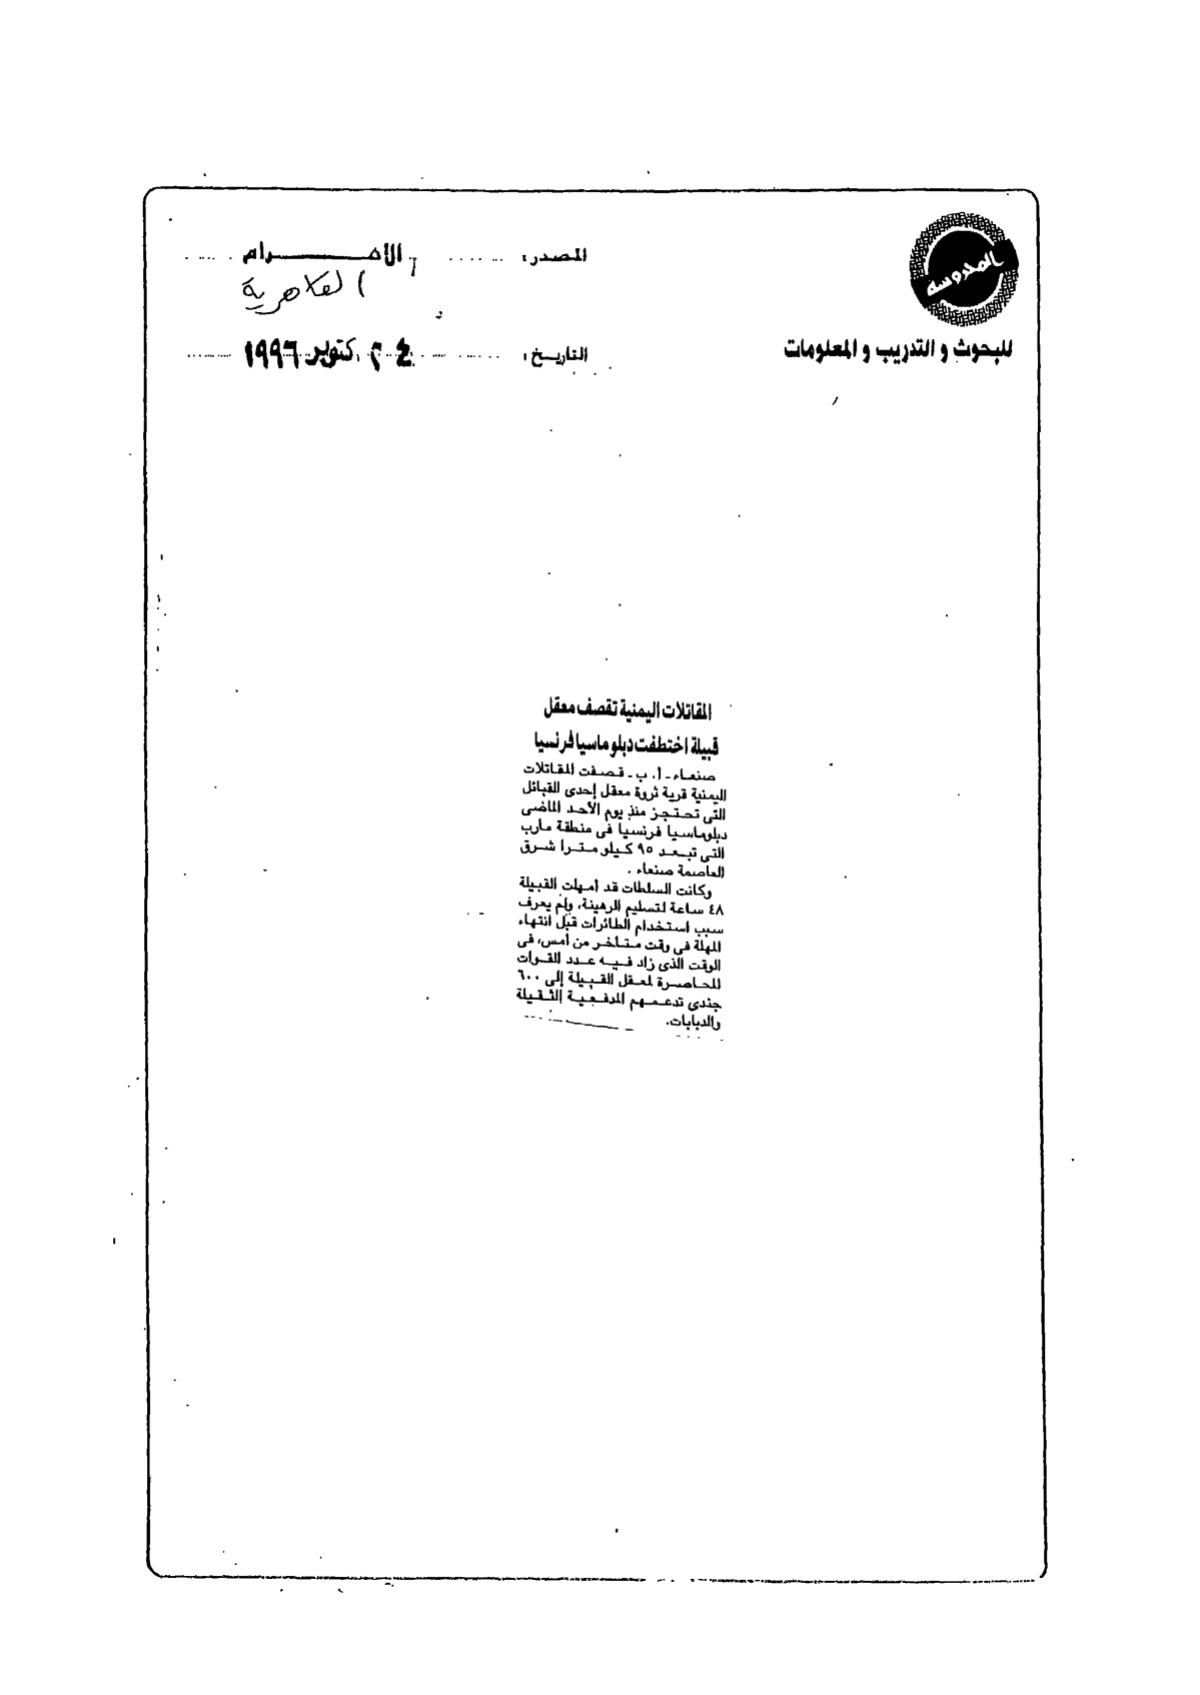 المحروسة
للبحوث و التدريب و المعلومات
المصدر: الأهـــــرام
القاهرية
التاريخ: ٢٤ أكتوبر ١٩٩٦
المقاتلات اليمنية تقصف معقل
قبيلة اختطفت دبلوماسيا فرنسيا
صنعاء - أ. ب - قصفت المقاتلات
اليمنية قرية ثروة معقل إحدى القبائل
التى تحتجز منذ يوم الأحد الماضى
دبلوماسيا فرنسيا فى منطقة مأرب
التى تبعد ٩٥ كيلو مترا شرق
العاصمة صنعاء .
وكانت السلطات قد أمهلت القبيلة
٤٨ ساعة لتسليم الرهينة، ولم يعرف
سبب استخدام الطائرات قبل انتهاء
المهلة فى وقت متأخر من أمس، فى
الوقت الذى زاد فيه عدد القوات
المحاصرة لمعقل القبيلة إلى ٦٠٠
جندى تدعمهم المدفعية الثقيلة
والدبابات.